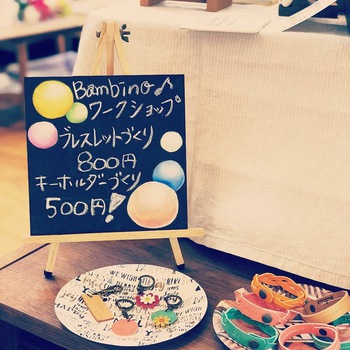 Bambino♪
ワークショップ
ブレスレットづくり
800円
キーホルダーづくり
500円!